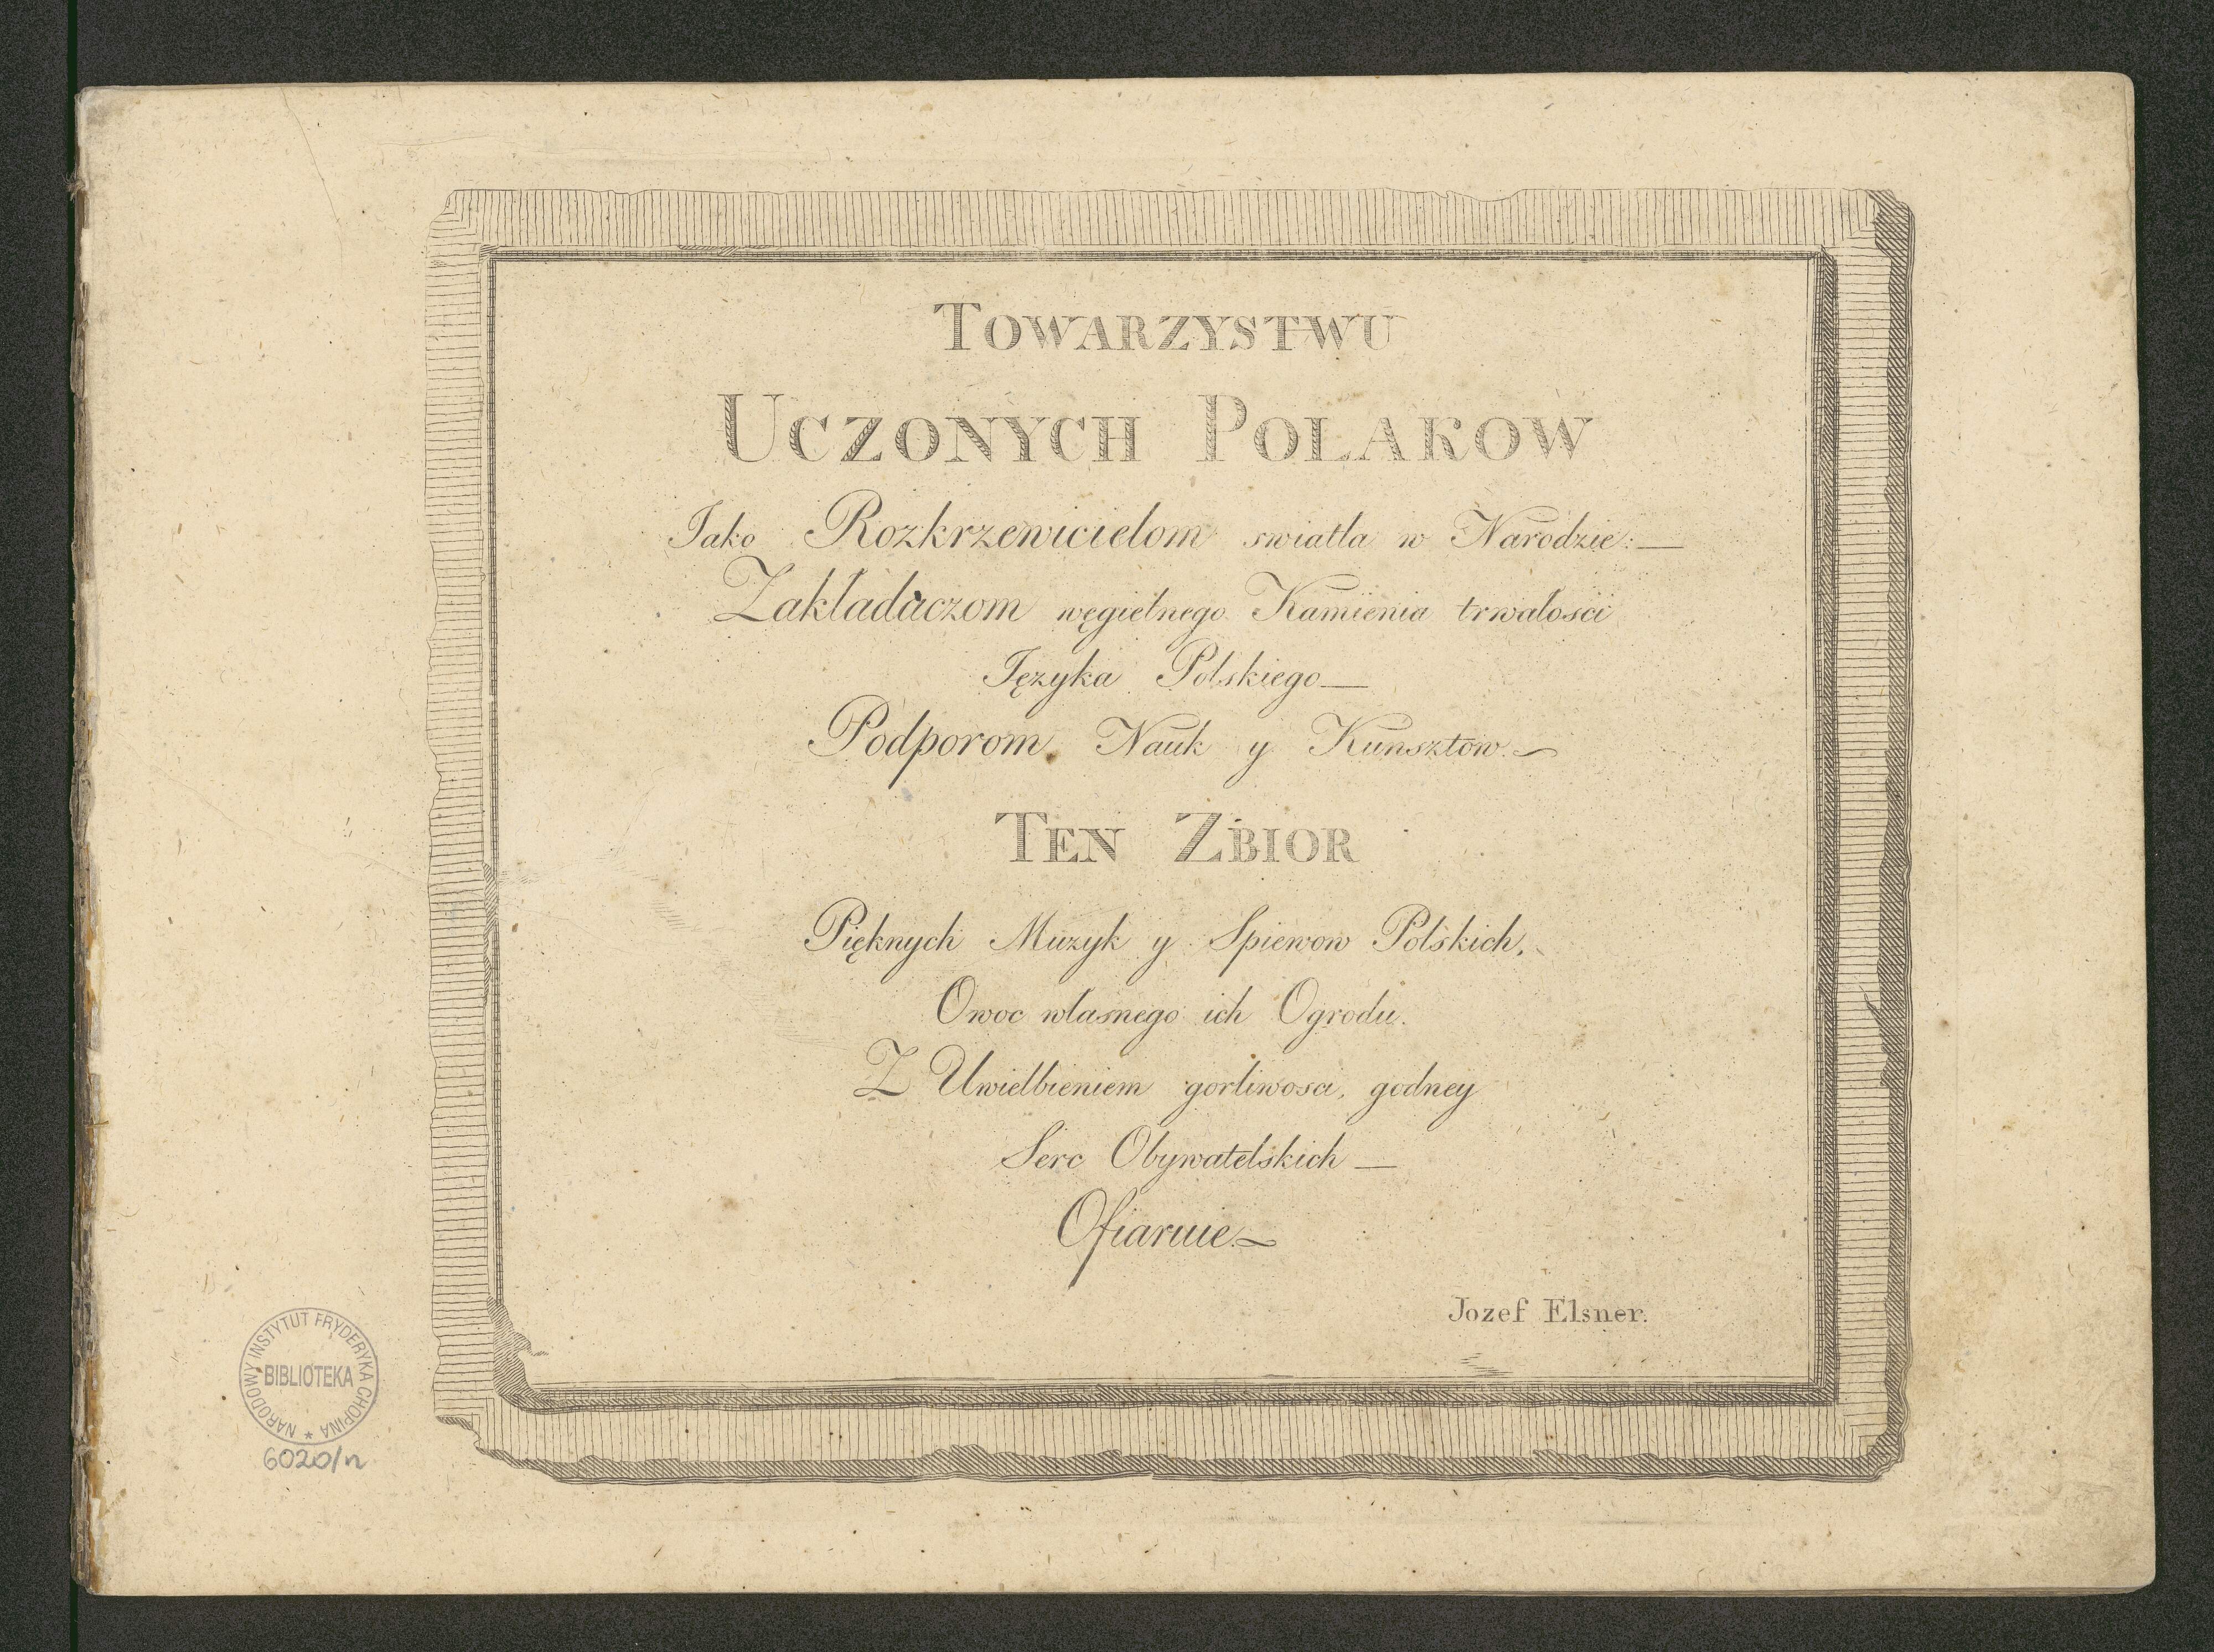 TOWARZYSTWU
UCZONYCH POLAKOW
Jako Rozkrzewicielom swiatła w Narodzie:—
Zakładaczom węgielnego Kamienia trwałości
Języka Polskiego—
Podporom Nauk y Kunsztow.~
TEN ZBIOR
Pięknych Muzyk y Spiewow Polskich,
Owoc własnego ich Ogrodu.
Z Uwielbieniem gorliwosci, godney
Serc Obywatelskich—
Ofiaruie.~
Jozef Elsner.
NARODOWY INSTYTUT FRYDERYKA CHOPINA *
BIBLIOTEKA
6020/n